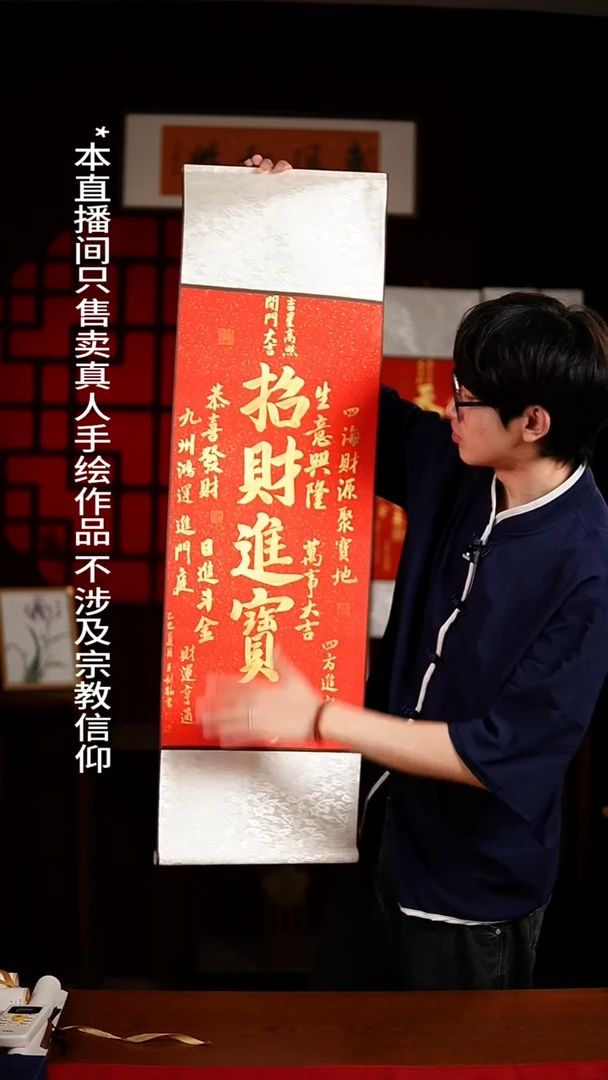 *本直播间只售卖真人手绘作品 不涉及宗教信仰
吉星高照
開門大吉
招財進寶
四海財源聚寶地
生意興隆
萬事大吉
四方進
恭喜發財
九州鴻運進門庭
日進斗金
財運亨通